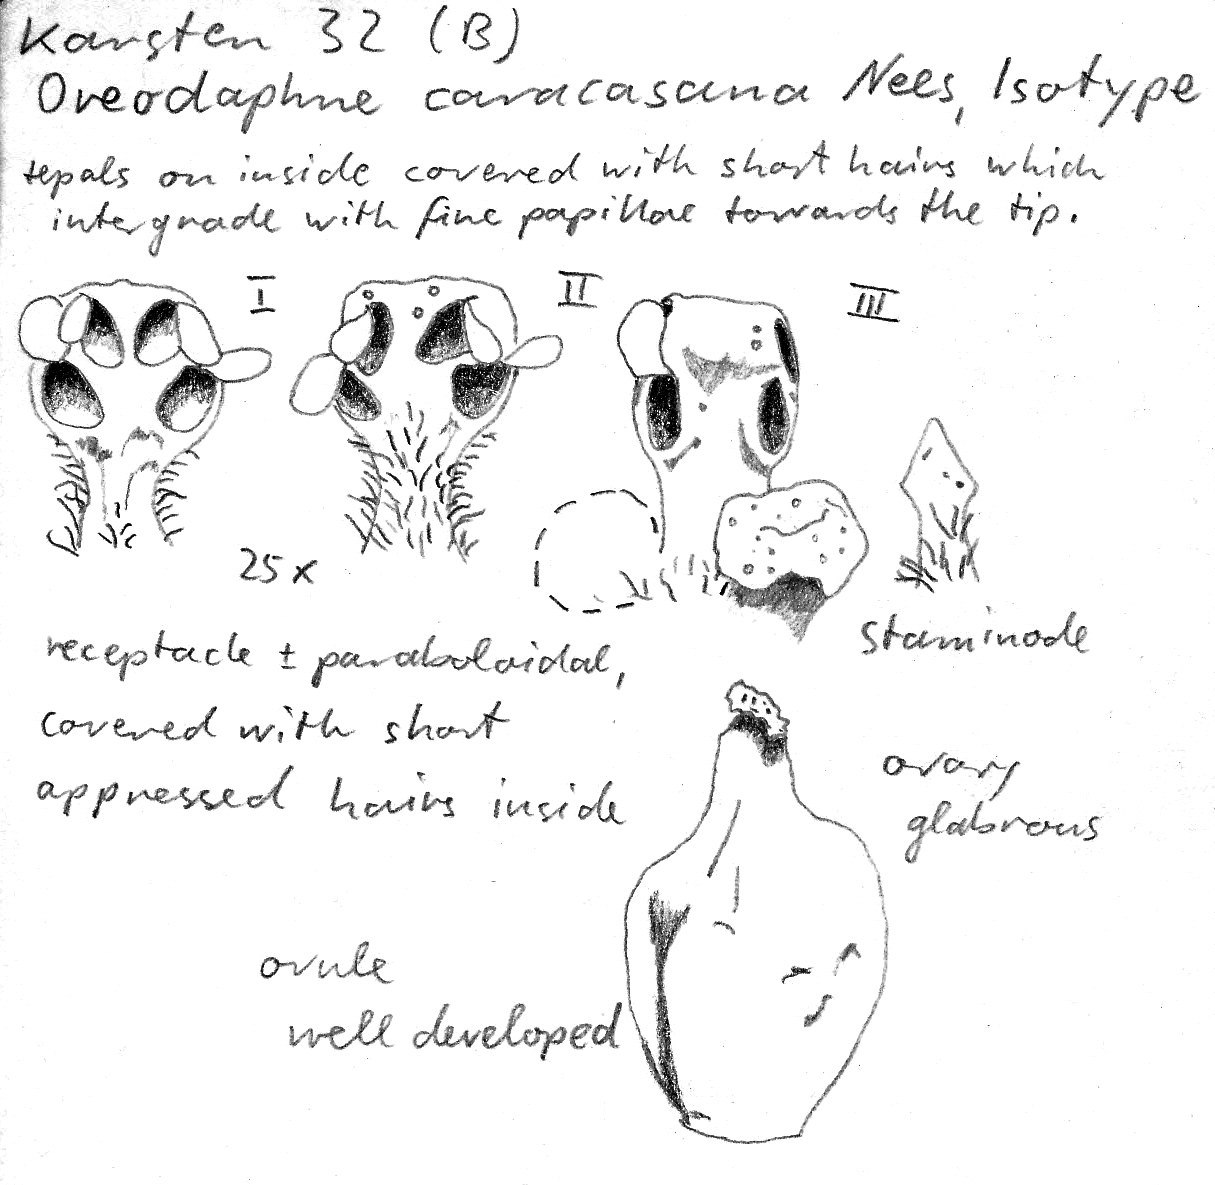 Karsten 32 (B)
Oreodaphne caracasana Nees, Isotype
tepals on inside covered with short hairs which
intergrade with fine papillae towards the tip.
I II III
25x
staminode
receptacle ± paraboloidal,
covered with short
appressed hairs inside
ovary
glabrous
ovule
well developed